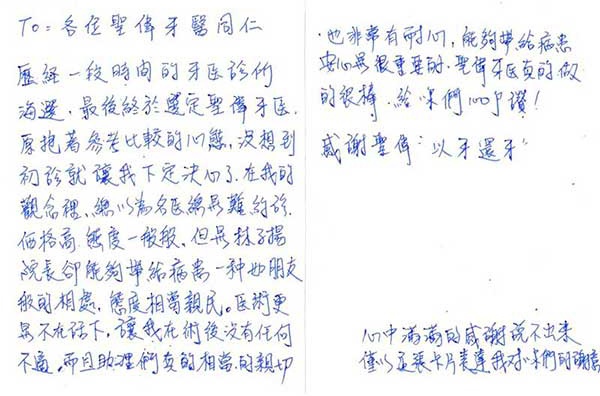 To：各位聖偉牙醫同仁
歷經一段時間的牙医診所
海選，最後終於選定聖偉牙医，
原抱著參考比較的心態，沒想到
初診就讓我下定決心了。在我的
觀念裡，總以為名医總是難約診、
価格高、態度一般般，但是林子揚
院長卻能夠帶給病患一種如朋友
般的相處，態度相當親民。医術更
是不在話下，讓我在術後沒有任何
不適，而且助理們真的相當的親切
，也非常有耐心，能夠帶給病患
安心是很重要的，聖偉牙医真的做
的很棒，給你們100個讚！
感謝聖偉"以牙還牙"
心中滿滿的感謝說不出來
僅以這張卡片表達我對你們的謝意